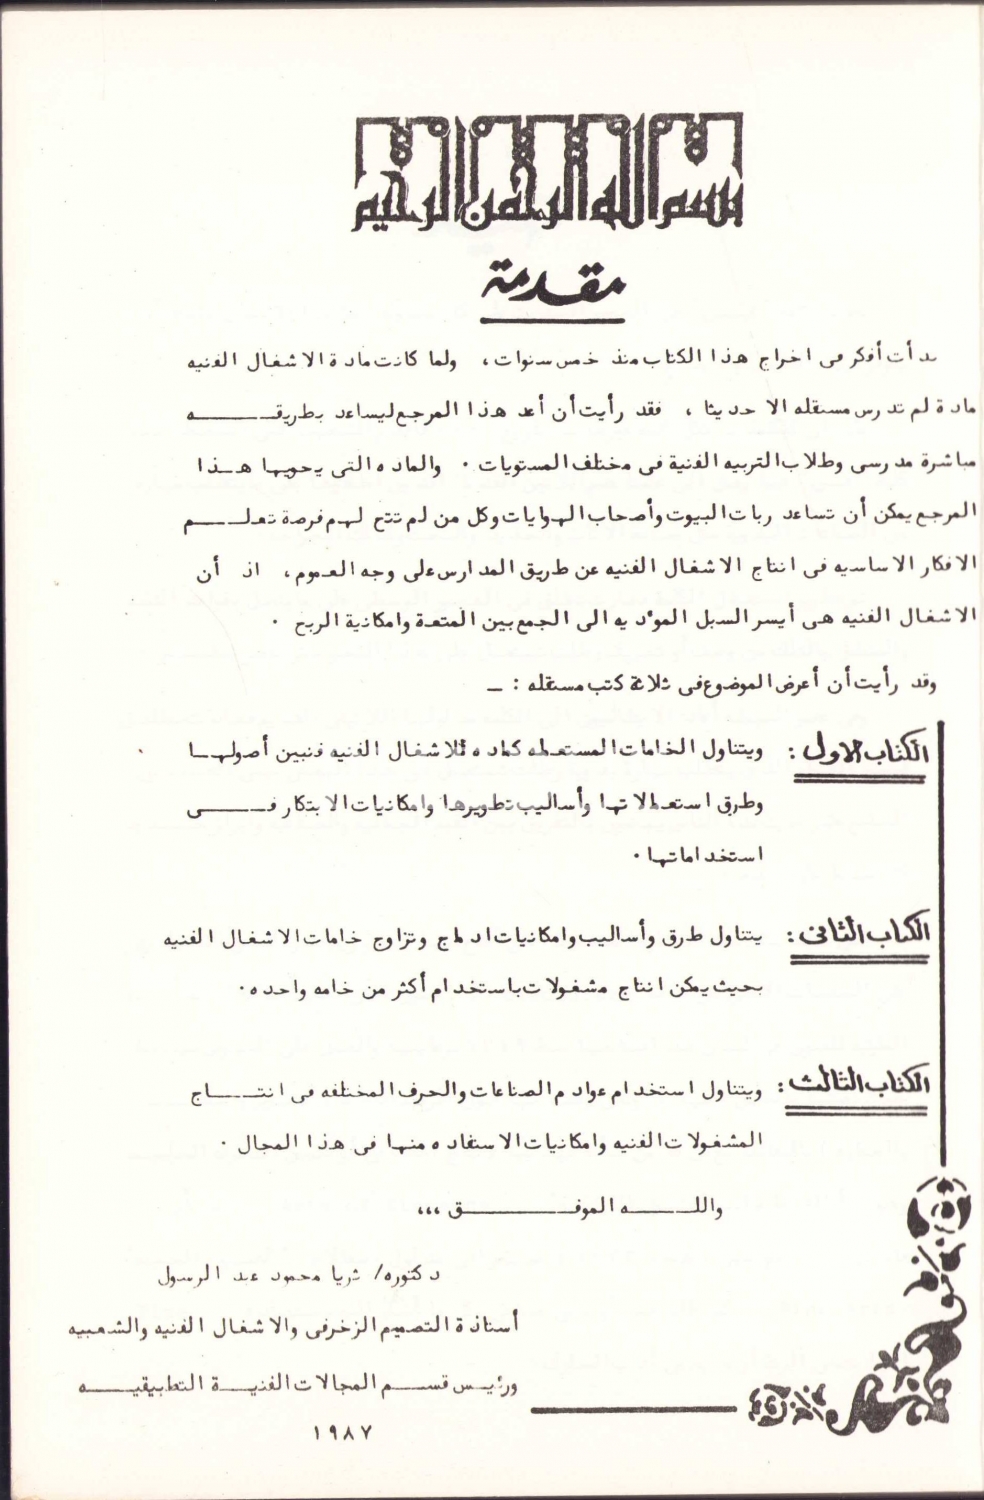 بسم الله الرحمن الرحيم
مقدمة
بدأت أفكر فى اخراج هذا الكتاب منذ خمس سنوات، ولما كانت مادة الاشغال الفنيه
مادة لم تدرس مستقله الا حديثا ، فقد رأيت أن أعد هذا المرجع ليساعد بطريقــــــه
مباشرة مدرسى وطلاب التربيه الفنية فى مختلف المستويات ٠ والماده التى يحويها هــذا
المرجع يمكن أن تساعد ربات البيوت وأصحاب الهوايات وكل من لم تتح لهم فرصة تعلـــم
الافكار الاساسيه فى انتاج الاشغال الفنيه عن طريق المدارس على وجه العموم، اذ أن
الاشغال الفنيه هى أيسر السبل المؤديه الى الجمع بين المتعة وامكانية الربح ٠
وقد رأيت أن أعرض الموضوع فى ثلاثة كتب مستقله : ــ
الكتاب الاول : ويتناول الخامات المستعمله كماده للاشغال الفنيه فنبين أصولهــا
وطرق استعمالاتها وأساليب تطويرها وامكانيات الابتكار فــــــى
استخداماتها ٠
الكتاب الثانى : يتناول طرق وأساليب وامكانيات ادماج وتزاوج خامات الاشغال الفنيه
بحيث يمكن انتاج مشغولات باستخدام أكثر من خامه واحده ٠
الكتاب الثالث : ويتناول استخدام عوادم الصناعات والحرف المختلفه فى انتــــاج
المشغولات الفنيه وامكانيات الاستفاده منها فى هذا المجال ٠
واللــــــه الموفــــــــق ،،،
دكتوره/ ثريا محمود عبد الرسول
أستاذة التصميم الزخرفى والاشغال الفنيه والشعبيه
ورئيـس قســـم المجالات الفنيـــة التطبيقيـــــه
١٩٨٧